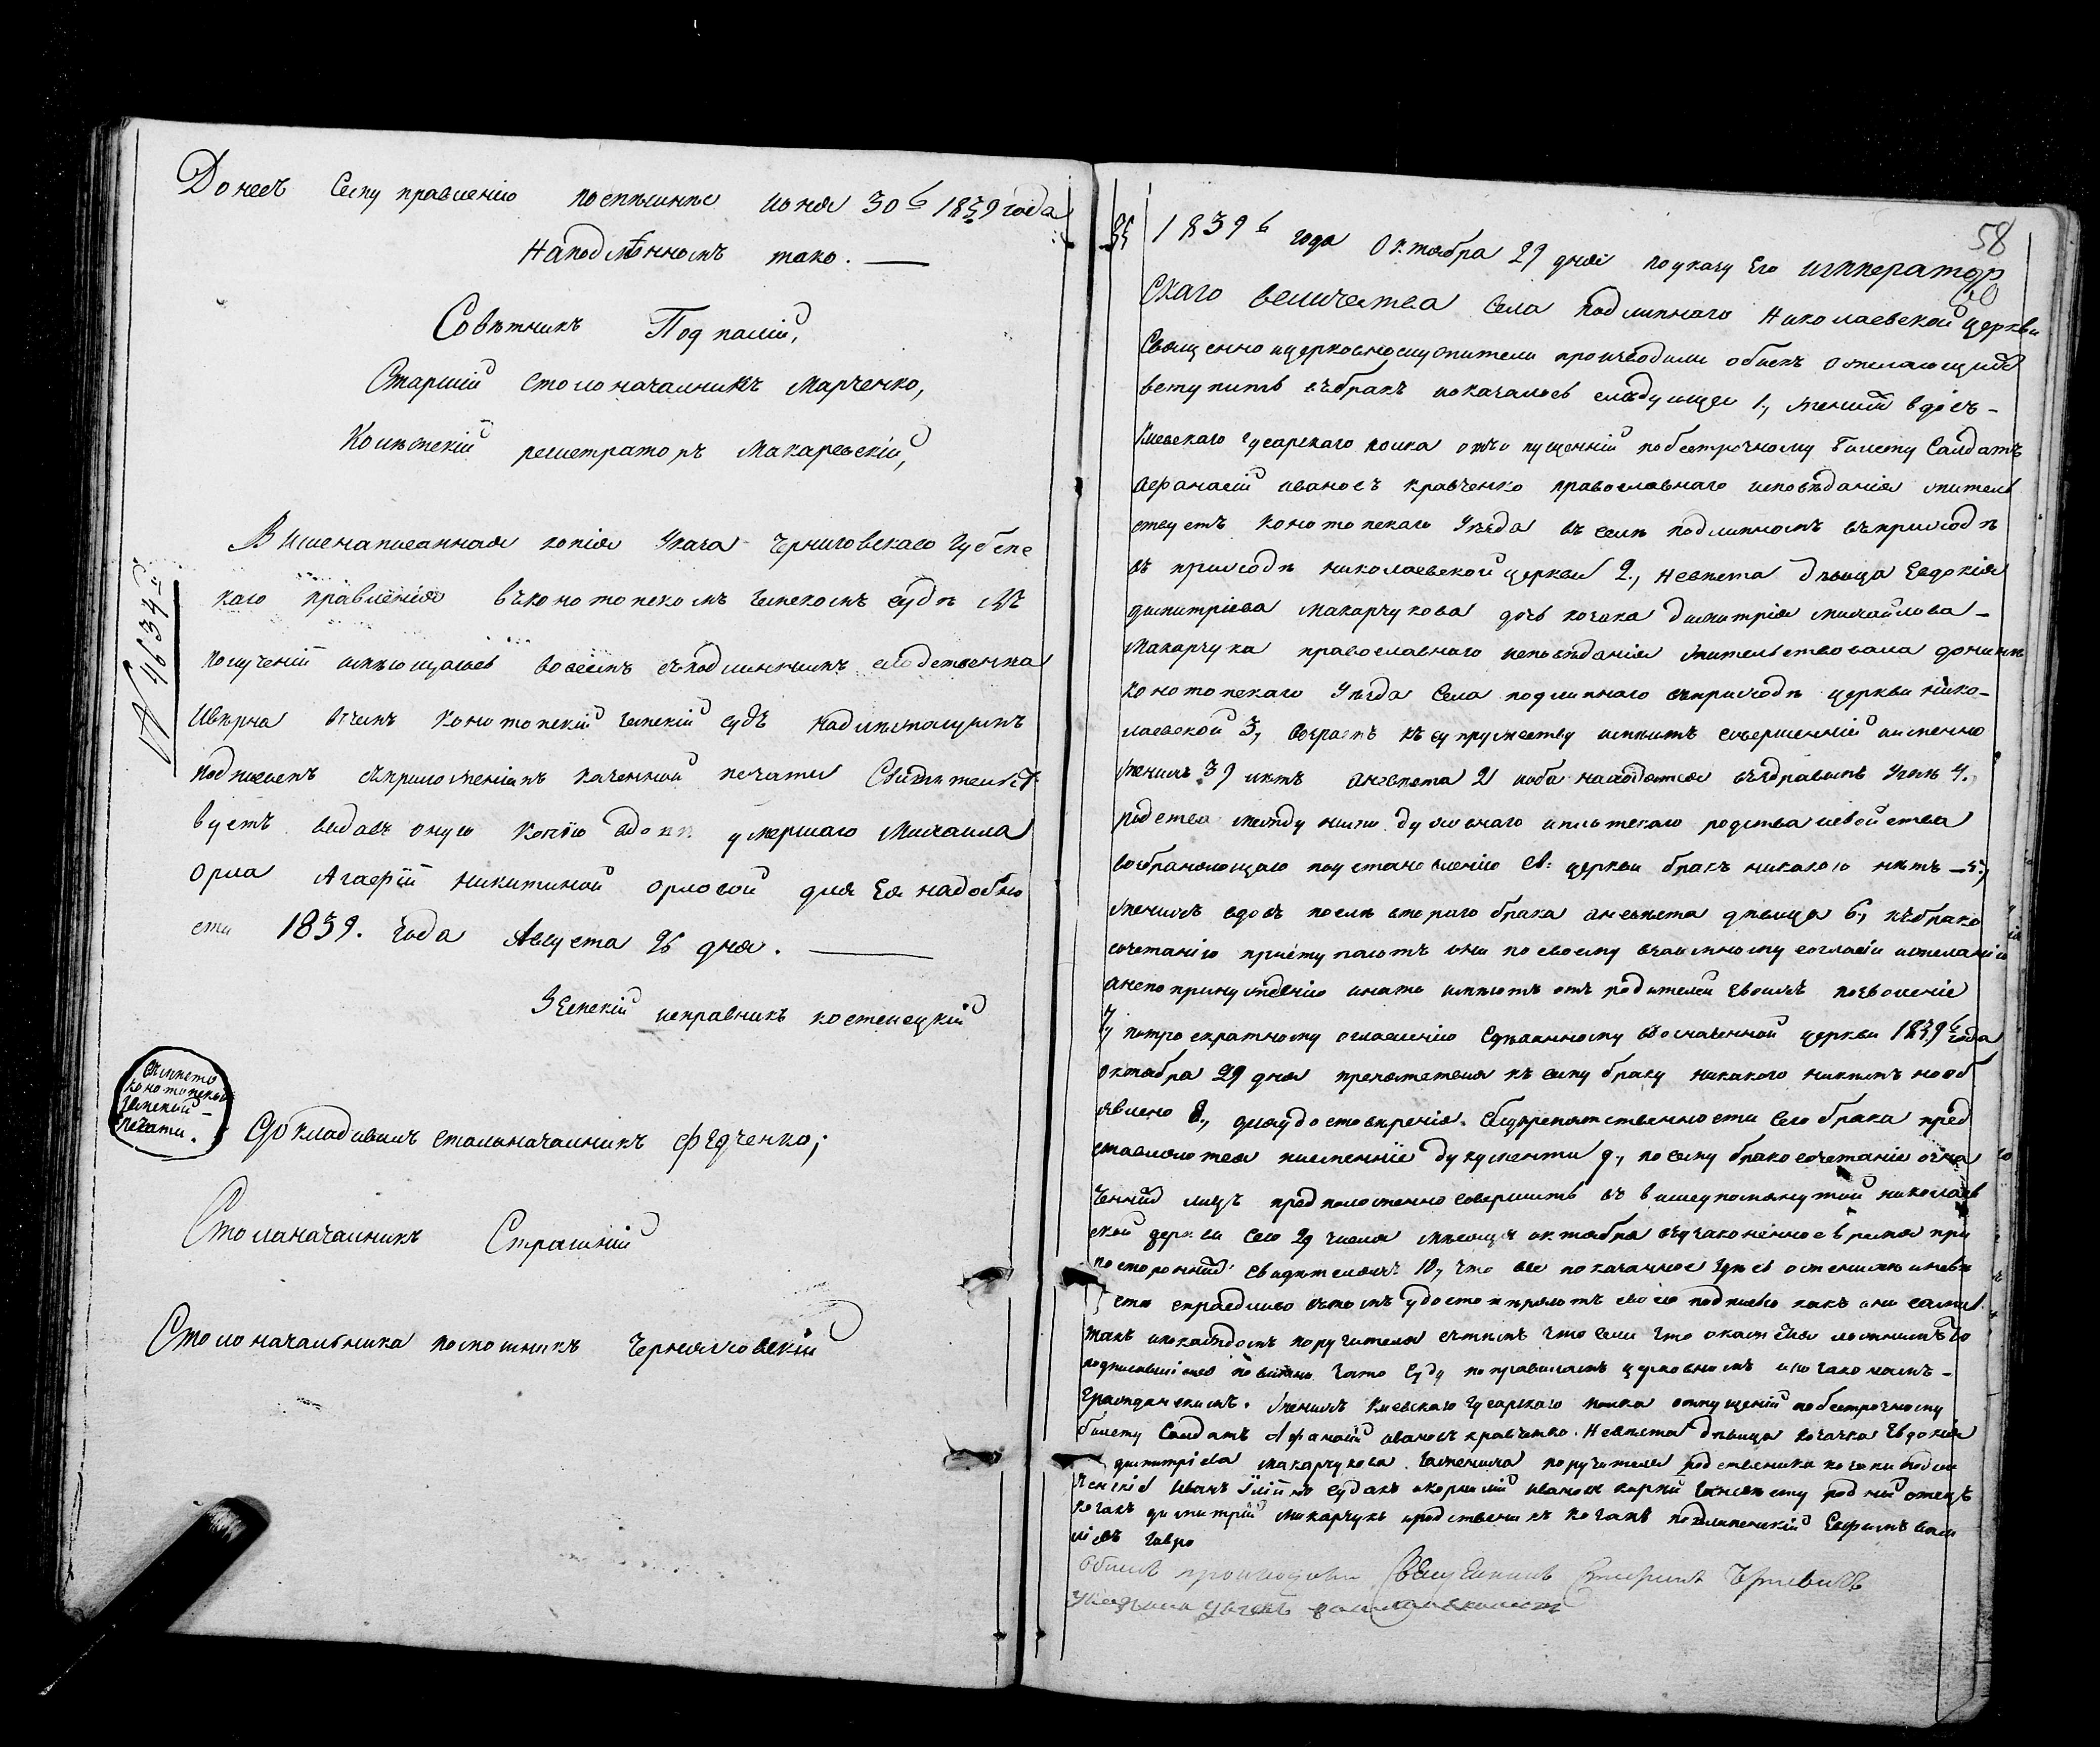 Донесъ Сему правленію поспѣшнѣе июня 30ь 1839 года
Наподлѣнномъ тако. —
Совѣтникъ Подпалій,
Старшій столоначалникъ Марченко,
Колѣжскій регистраторъ Макаревскій,
Вишенаписанная копія Указа Черниговскаго Губерн
скаго правленія въконотопскомъ земскомъ судѣ
полученій имѣющаясь вовсемъ съподлиннимъ сходственна
Ивѣрна втимъ Конотопскій земскій судъ надлѣжащимъ
подписомъ съприложеніемъ казенной печати Свидѣтелст
вуетъ видавъ оную копію вдовѣ умершаго Михаила
Орла Агафій Никитиной Орловой для Ея надобно
сти 1839. Года Августа 26 дня. —
Земскій исправникъ костенецкій
№ 4634й
Вмѣсто
конотопской
земской
печати.
Докладивалъ столоначалникъ Федченко;
Столоначалникъ Страшній
Столоначальника помошникъ Черняховскій
58
60
1839ь года Октября 29 дня поуказу Его император
Скаго величества Села подлипнаго Николаевской церкви
Священно ицерковнослужители производили обискъ ожелающихъ
вступить въбракъ иоказалось слѣдующее 1, женихъ
Киевскаго гусарскаго полка отпущенній побезсрочному билету Салдатъ
Афанасій ивановъ кравченко православнаго исповѣданія жител
ствуетъ конотопскаго уѣзда въ селѣ подлипномъ въприходѣ
въ приходѣ николаевской церкви 2, Невѣста дѣвица Евдокія
димитріева Макарчукова дочь козака Димитрія михайлова
Макарчука православнаго исповѣданія жительствовала донинѣ
конотопскаго уѣзда Села подлипнаго въприходѣ церкви нико-
лаевской 3, возрастъ къ супружеству имѣютъ совершенній именно
женихъ 39 лѣтъ аневѣста 21 иоба находятся въздравомъ умѣ 4.
родства между ними духовнаго иплотскаго родства исвойства
возбраняющаго поустановленію св: церкви бракъ никакого нѣтъ — 5,
женихъ вдовъ послѣ втораго брака аневѣста дѣвица 6, къбрако
сочетанію приступаютъ они посвоему взаимному согласію ижеланію
анепопринужденію инато имѣютъ отъ родителей своихъ позволеніе
7, потроекратному оглашенію Сдѣланному возначенной церкви 1839ь года
октября 29 дня препятствія къ сему браку никакого никимъ необ
явлено 8, дляудостовѣренія безпрепятственности Сего брака пред
ставляются писменніе дукументи 9, посему бракосочетаніе озна
ченнихъ лицъ предположенно совершить въ вишеупомянутой николаев
ской церкви сего 29 числа мѣсяца октября въузаконенное время при
постороннихъ свидѣтеляхъ 10, что все показанное здѣсь оженихѣ иневѣ
стѣ справедливо вътомъ удостовѣряютъ своею подписью какъ они сами
такъ покаждомъ поручителя стѣмъ что если что окажется ложнимъ то
подписавшіеся повинни зато Суду поправиламъ церковнимъ ипозаконамъ
гражданскимъ. Женихъ Киевскаго гусарскаго полка отпущеній побезсрочному
билету Салдатъ Афанасій ивановъ кравченко. Невѣста дѣвица козачка Евдокія
димитріева Макарчукова. Зажениха поручители родственика козаки подли
пенскіе Иванъ Судакъ икорнилій ивановъ заневѣсту родній отецъ
козакъ димитрій макарчукъ иродственикъ козакъ подлипенскій Ефимъ васи
ліевъ
Обискъ производили Священникъ